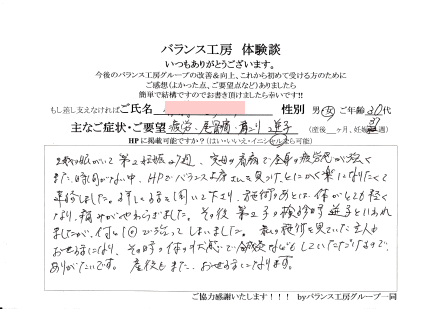 バランス工房 体験談
いつもありがとうございます。
今後のバランス工房グループの改善&向上、これから初めて受ける方のために
ご感想(よかった点、ご要望点など)ありましたら
簡単で結構ですのでお書き頂けましたら幸いです!!
もし差し支えなければご氏名 性別 男・女 ご年齢30代
主なご症状・ご要望 疲労・尾骨痛・肩こり 逆子 (産後 ヶ月、妊娠37週)
HPに掲載可能ですか?(はい・いいえ・イニシャルなら可能)
2歳の娘がいて第2妊娠37週、実母の看病で全身の疲労感が強く
また、時間がない中、HPでバランス工房さんを見つけ とにかく楽になりたくて
連絡しました。詳しく話を聞いて下さり、施術のあとは体がとても軽く
なり、痛みがやわらぎました。その後 第2子の検診時 逆子といわれ
ましたが、 1回で治ってしまいました。私の施術を見ていた主人も
お世話になり、その時の体の状態で施術 などもしていただけるので、
ありがたいです。産後もまた、お世話になります。
ご協力感謝いたします!!! byバランス工房グループ一同